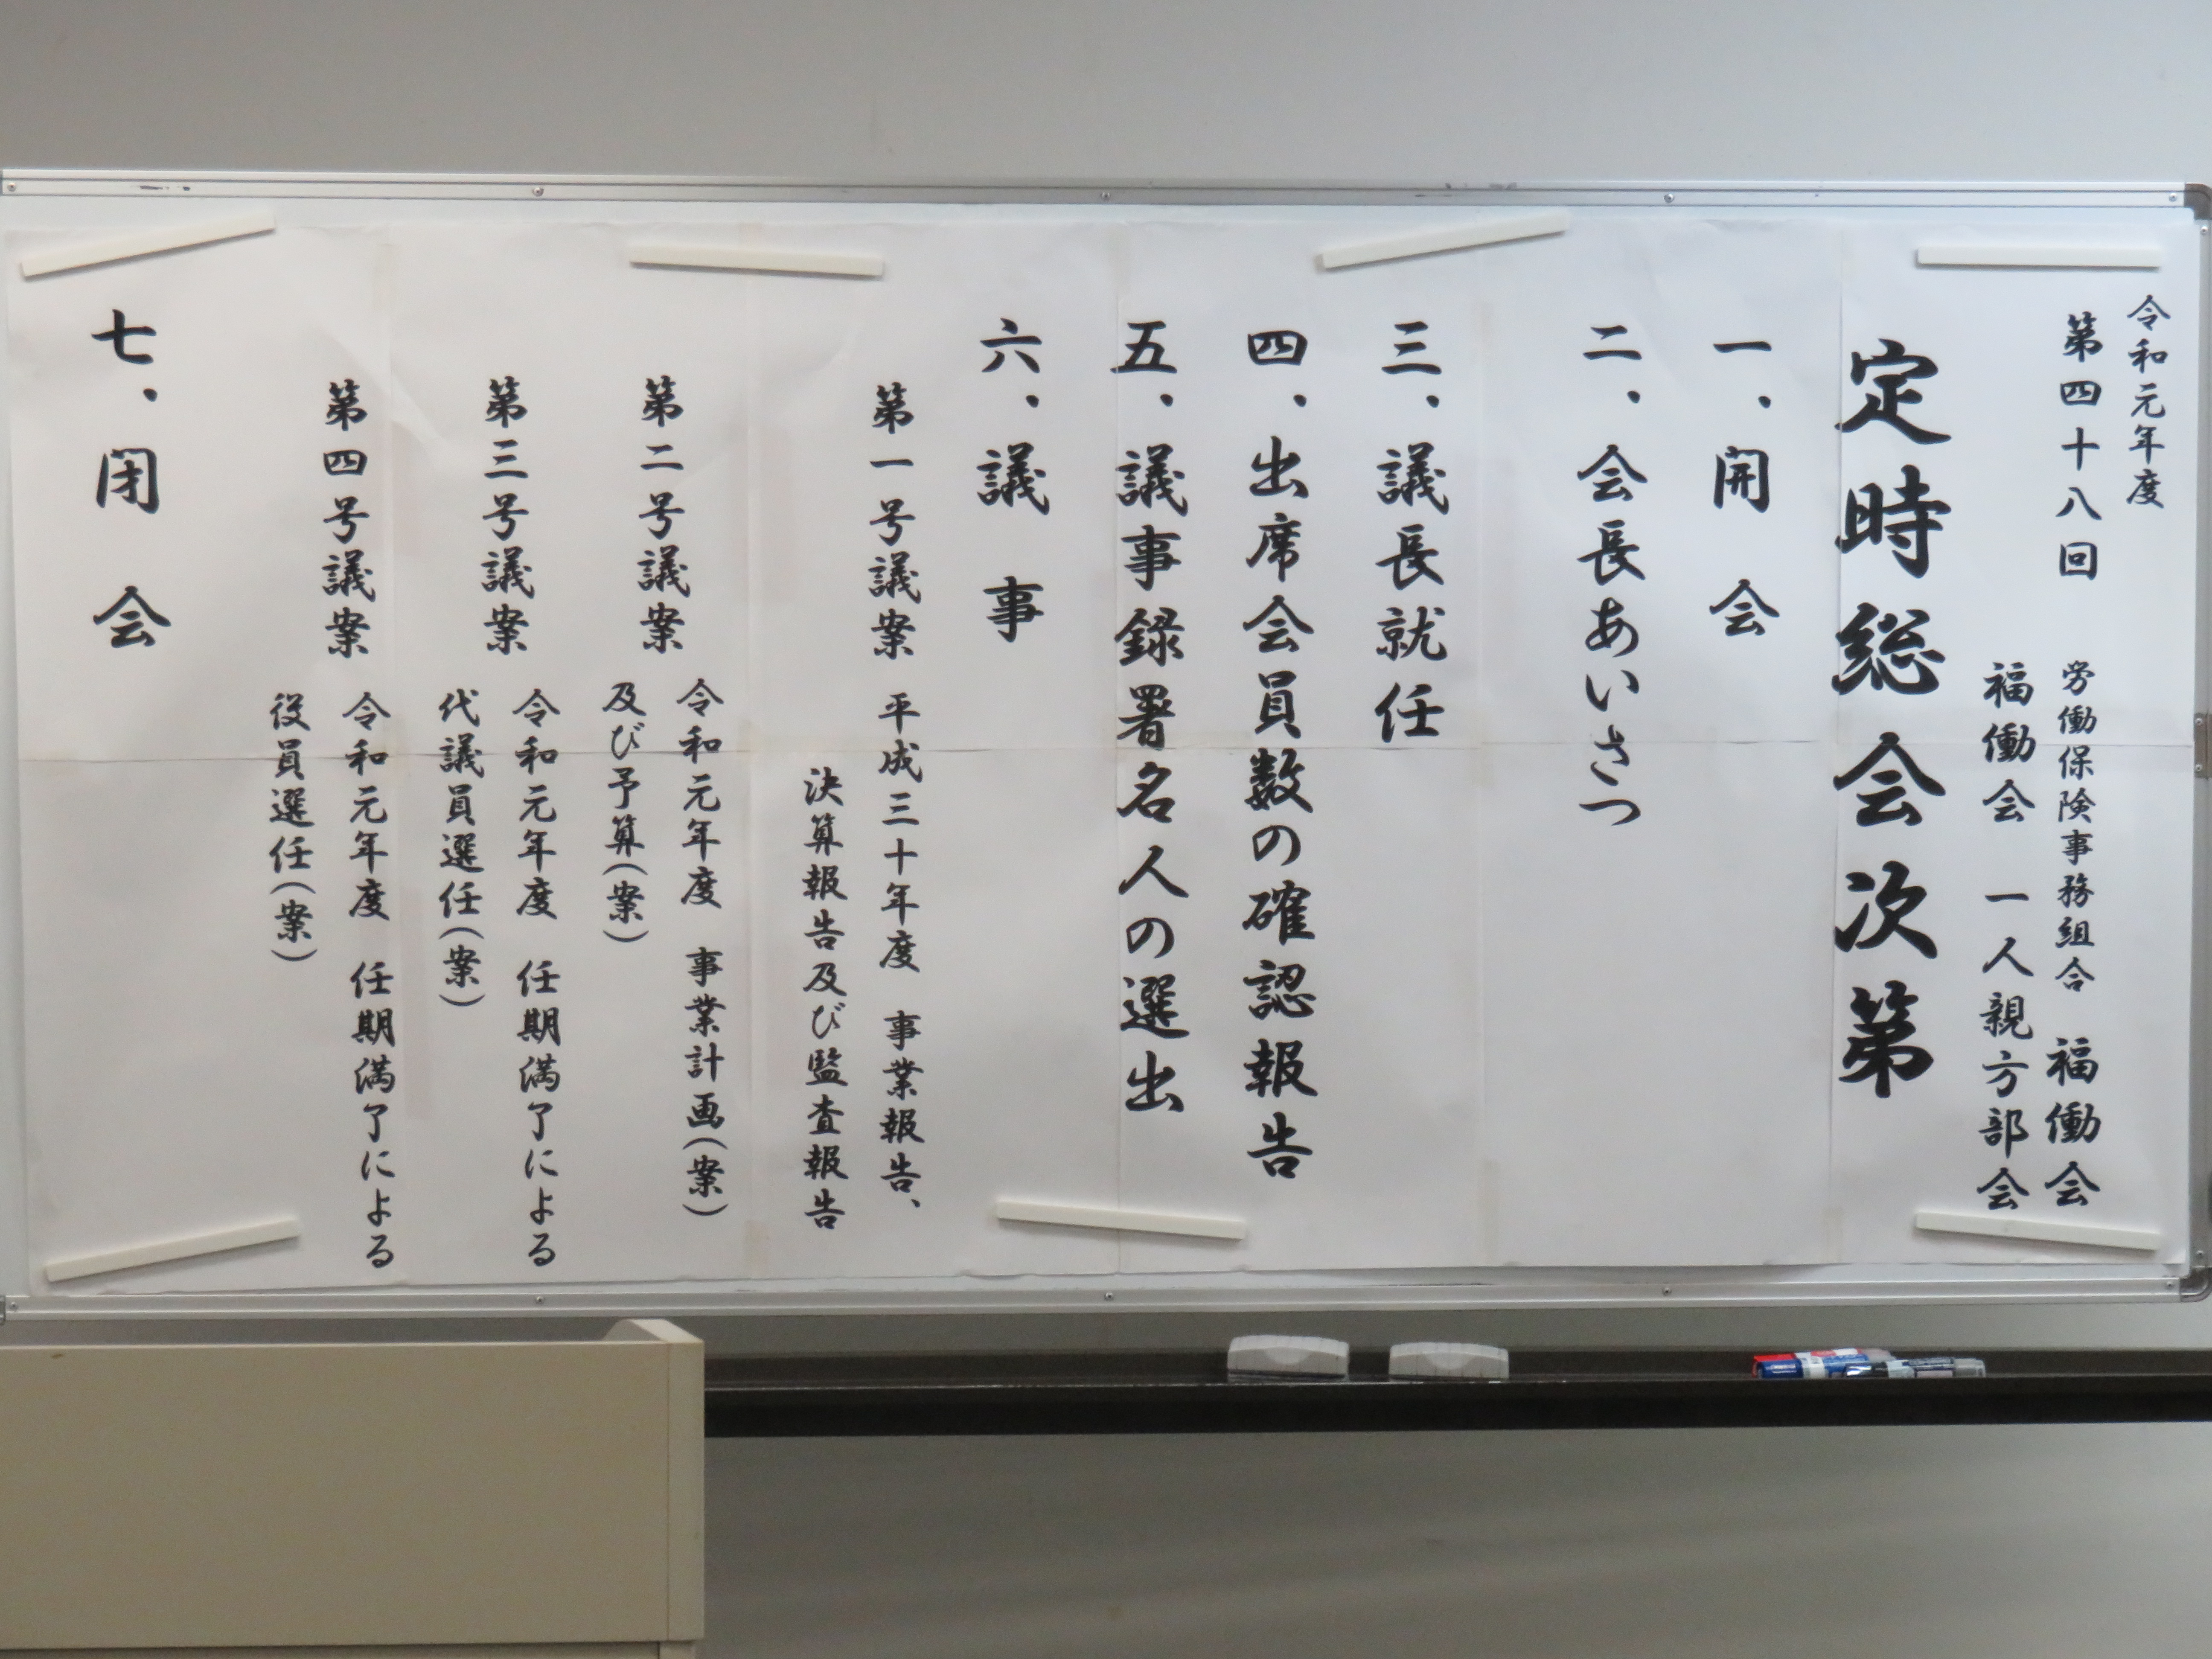 令和元年度
第四十八回 労働保険事務組合 福働会
福働会 一人親方部会
定時総会次第
一、開 会
二、会長あいさつ
三、議長就任
四、出席会員数の確認報告
五、議事録署名人の選出
六、議 事
第一号議案 平成三十年度 事業報告、
決算報告及び監査報告
第二号議案 令和元年度 事業計画(案)
及び予算(案)
第三号議案 令和元年度 任期満了による
代議員選任(案)
第四号議案 令和元年度 任期満了による
役員選任(案)
七、閉 会